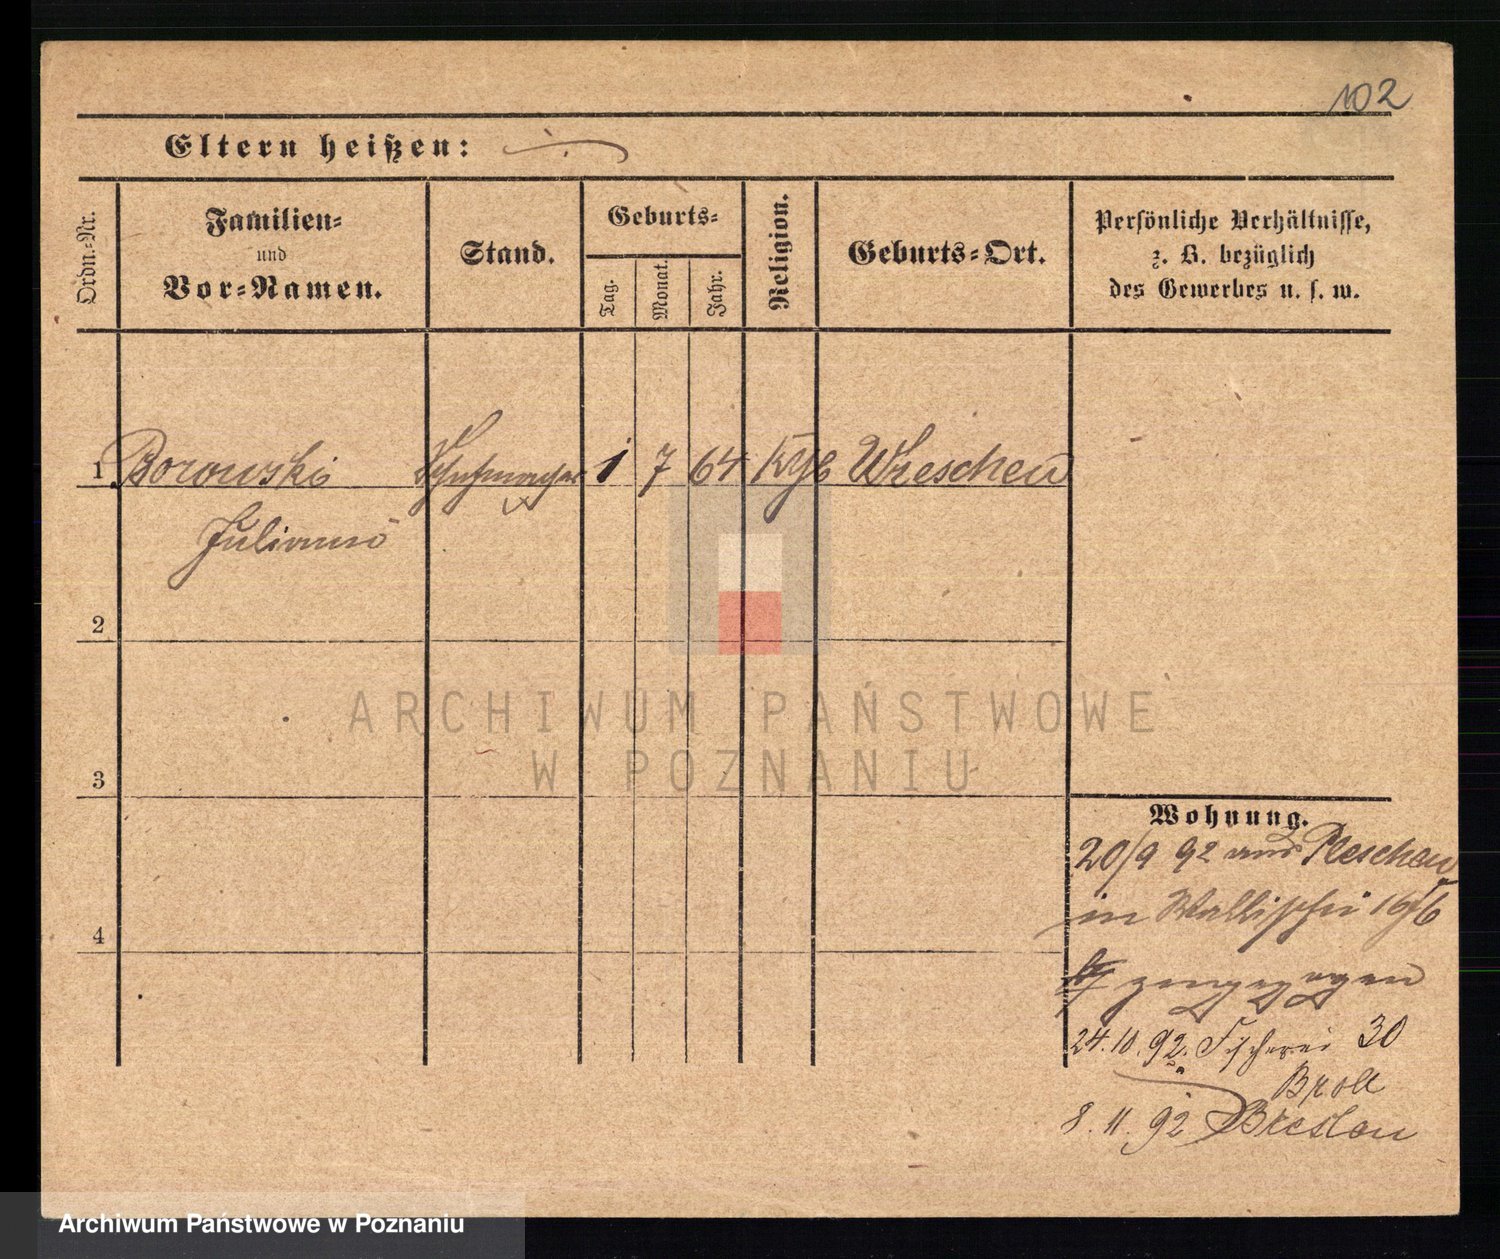 102
Eltern heißen:
Ordn.-Nr.
Familien-
und
Vor-Namen.
Stand.
Geburts-
Tag.
Monat.
Jahr.
Religion.
Geburts-Ort.
Persönliche Verhältnisse,
z. B. bezüglich
des Gewerbes u. s. w.
1 Borowski 1 7 64 Wreschen
2
3
4
Wohnung.
20/9 92 aus Pleschen
in Wallischei
zugezogen
24.10.92. Fischerei 30
8.11.92 Breslau
ARCHIWUM PAŃSTWOWE
W POZNANIU
Archiwum Państwowe w Poznaniu